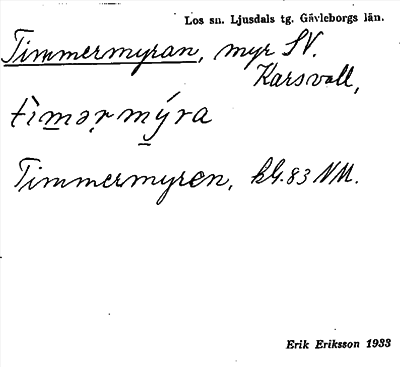 Los sn. Ljusdals tg. Gävleborgs län.
Timmermyran, myr SV.
Karsvall,
tìmər mýra
Timmermyren, bl. 83 NM.
Erik Eriksson 1933